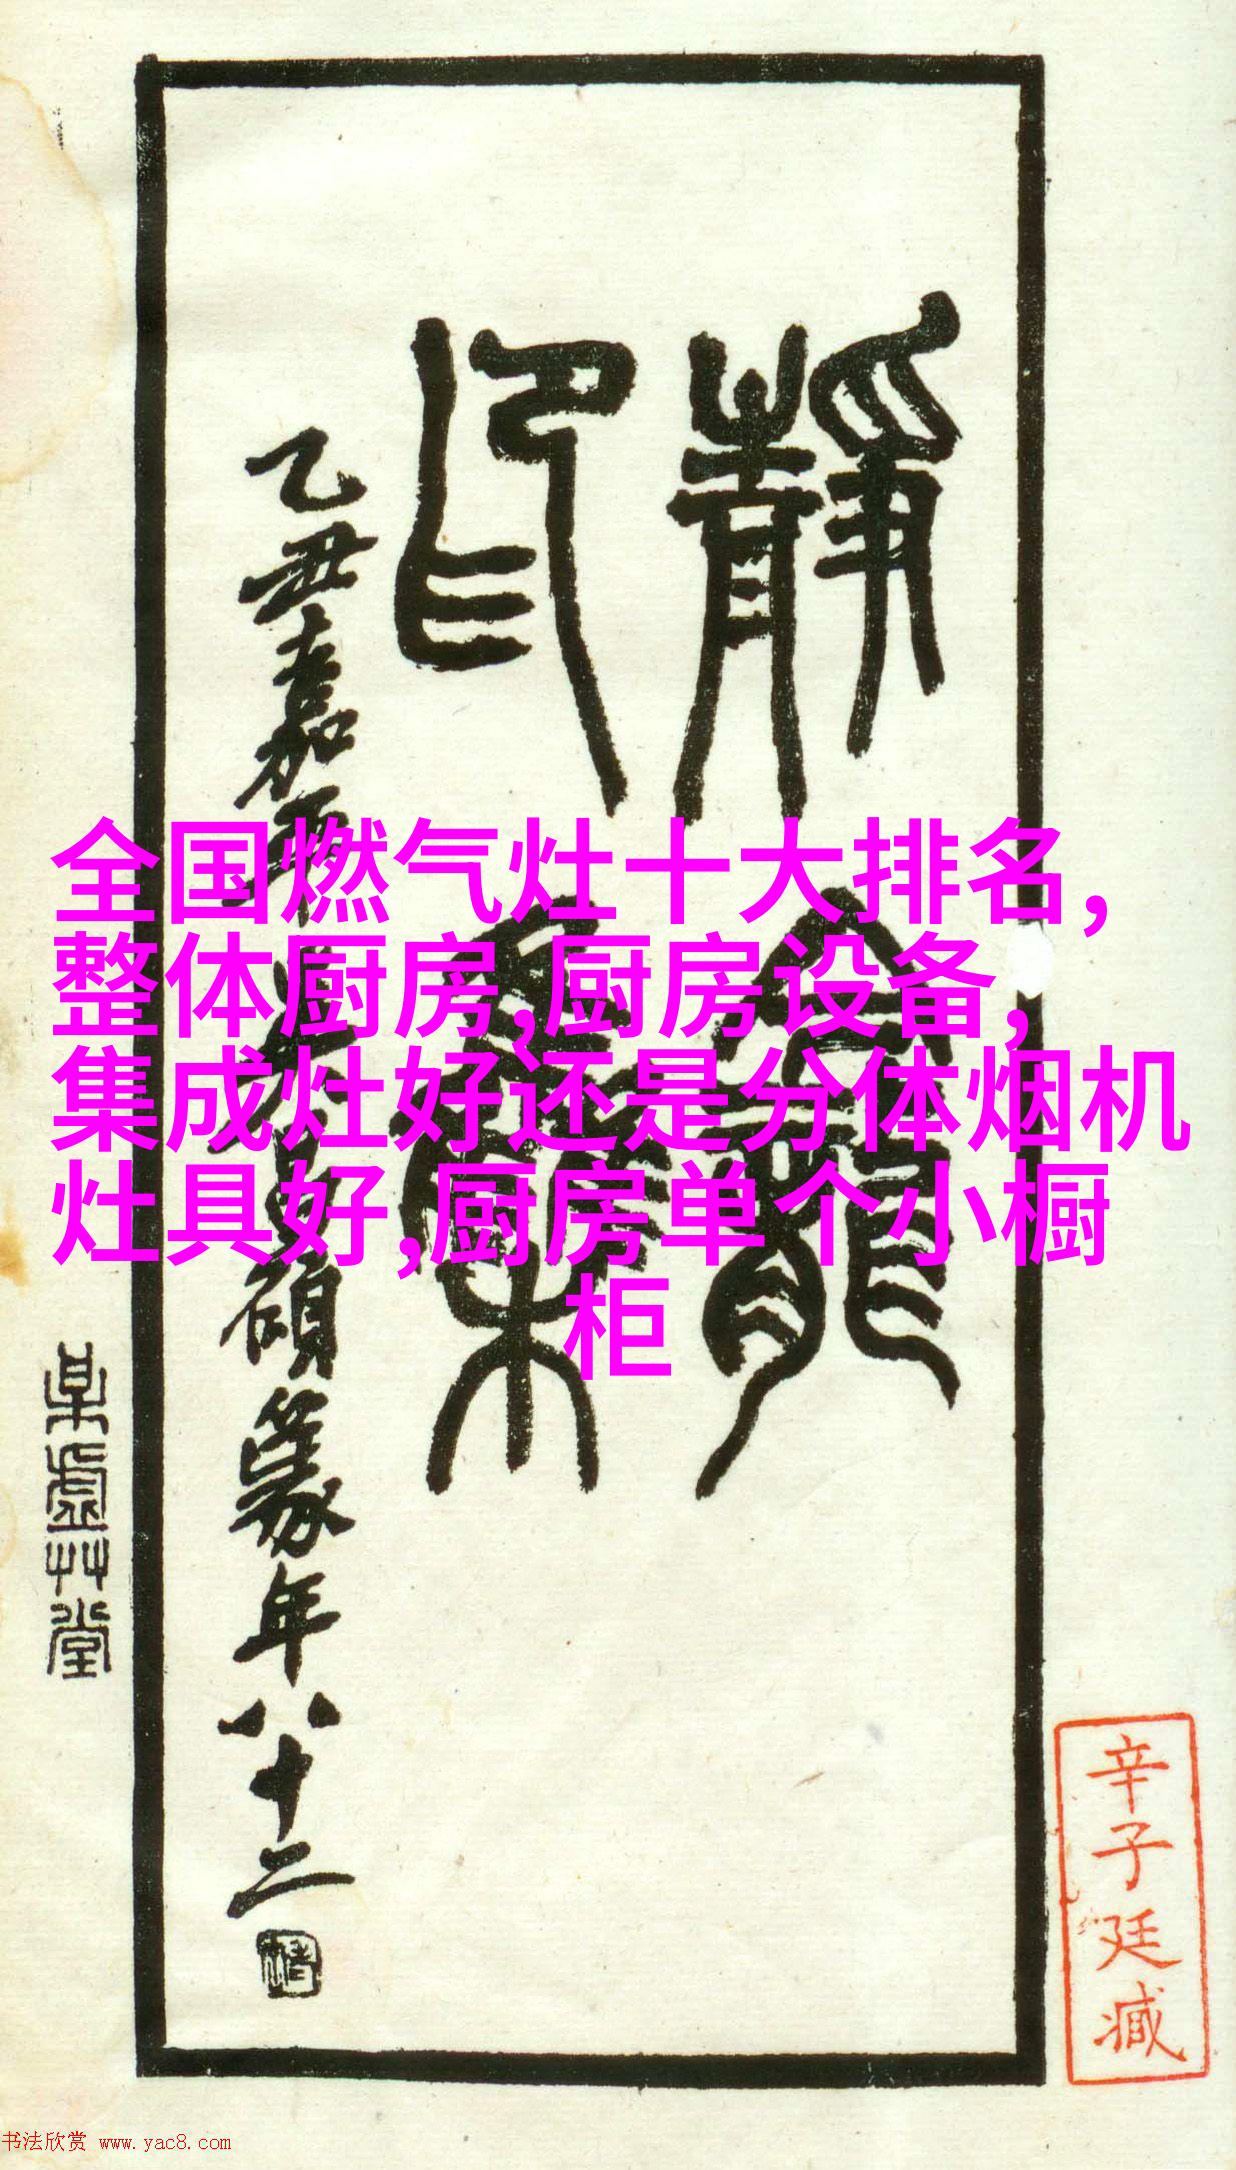 全国燃气灶十大排名,
整体厨房,厨房设备,
集成灶好还是分体烟机
灶具好,厨房单个小橱
柜
靜龕
印集
乙丑嘉平吳昌碩篆年八十二
某虛艸堂
辛子廷臧
书法欣赏 www.yac8.com